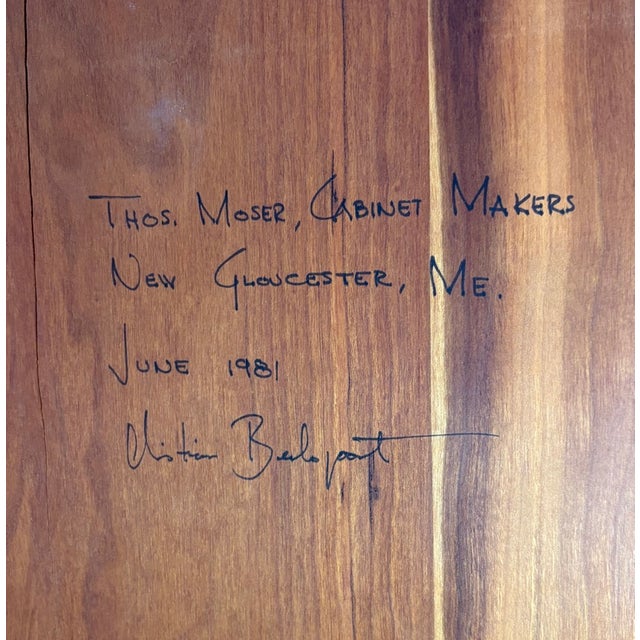 Thos. Moser, Cabinet Makers
New Gloucester, Me.
June 1981
Christian